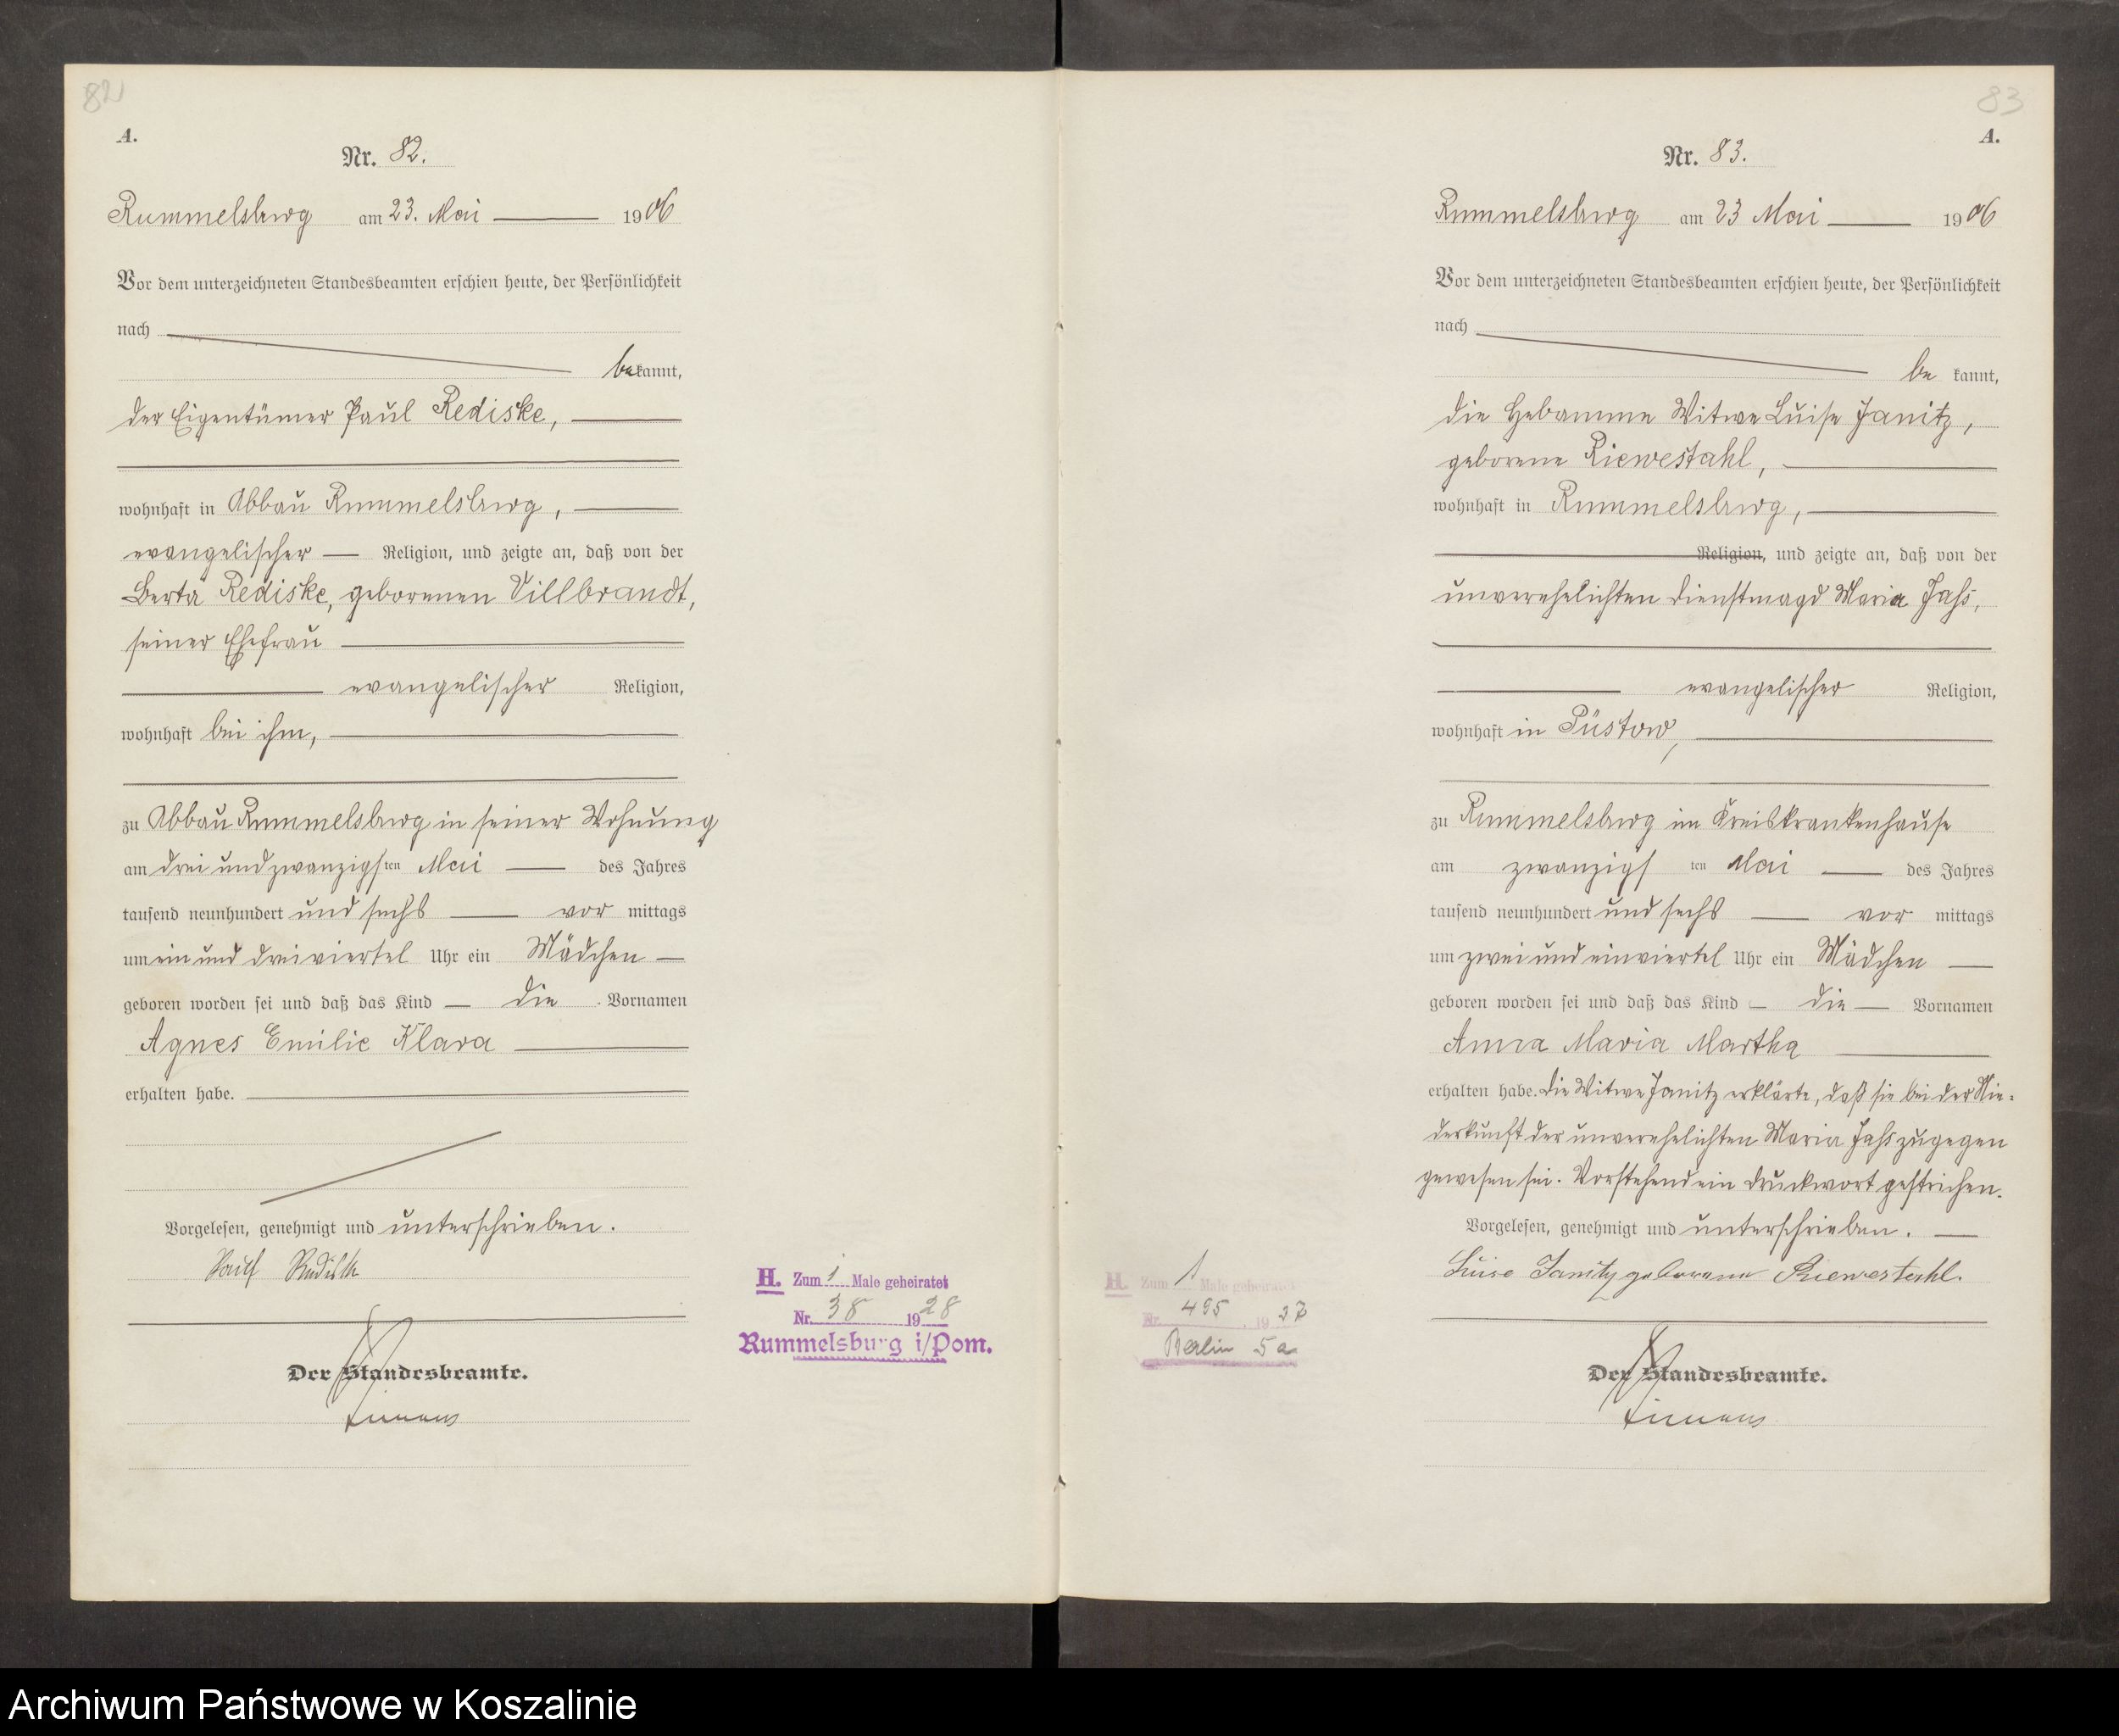 82
A.
Nr. 82.
Rummelsburg am 23. Mai 1906
Vor dem unterzeichneten Standesbeamten erschien heute, der Persönlichkeit
nach
bekannt,
der Eigentümer Paul Rediske,
wohnhaft in Abbau Rummelsburg,
evangelischer Religion, und zeigte an, daß von der
Berta Rediske, geborenen Villbrandt,
seiner Ehefrau
evangelischer Religion,
wohnhaft bei ihm,
zu Abbau Rummelsburg in seiner Wohnung
am drei und zwanzigsten Mai des Jahres
tausend neunhundert und sechs vor mittags
um ein und dreiviertel Uhr ein Mädchen
geboren worden sei und daß das Kind die Vornamen
Agnes Emilie Klara
erhalten habe.
Vorgelesen, genehmigt und unterschrieben.
Paul Rediske
Der Standesbeamte.
H. Zum 1 Male geheiratet
Nr. 38 1928
Rummelsburg i/Pom.
83
A.
Nr. 83.
Rummelsburg am 23 Mai 1906
Vor dem unterzeichneten Standesbeamten erschien heute, der Persönlichkeit
nach
be kannt,
die Hebamme Witwe Luise Janitz,
geborene Riewestahl,
wohnhaft in Rummelsburg,
Religion, und zeigte an, daß von der
unverehelichten Dienstmagd Maria Jahs,
evangelischer Religion,
wohnhaft in Püstow,
zu Rummelsburg im Kreiskrankenhause
am zwanzigsten Mai des Jahres
tausend neunhundert und sechs vor mittags
um zwei und einviertel Uhr ein Mädchen
geboren worden sei und daß das Kind die Vornamen
Anna Maria Martha
erhalten habe. Die Witwe Janitz erklärte, daß sie bei der Nie-
derkunft der unverehelichten Maria Jahs zugegen
gewesen sei. Vorstehend ein Druckwort gestrichen.
Vorgelesen, genehmigt und unterschrieben.
Luise Janitz geborene Riewestahl.
Der Standesbeamte.
H. Zum 1 Male geheiratet
Nr. 495 1927
Berlin 5a
Archiwum Państwowe w Koszalinie